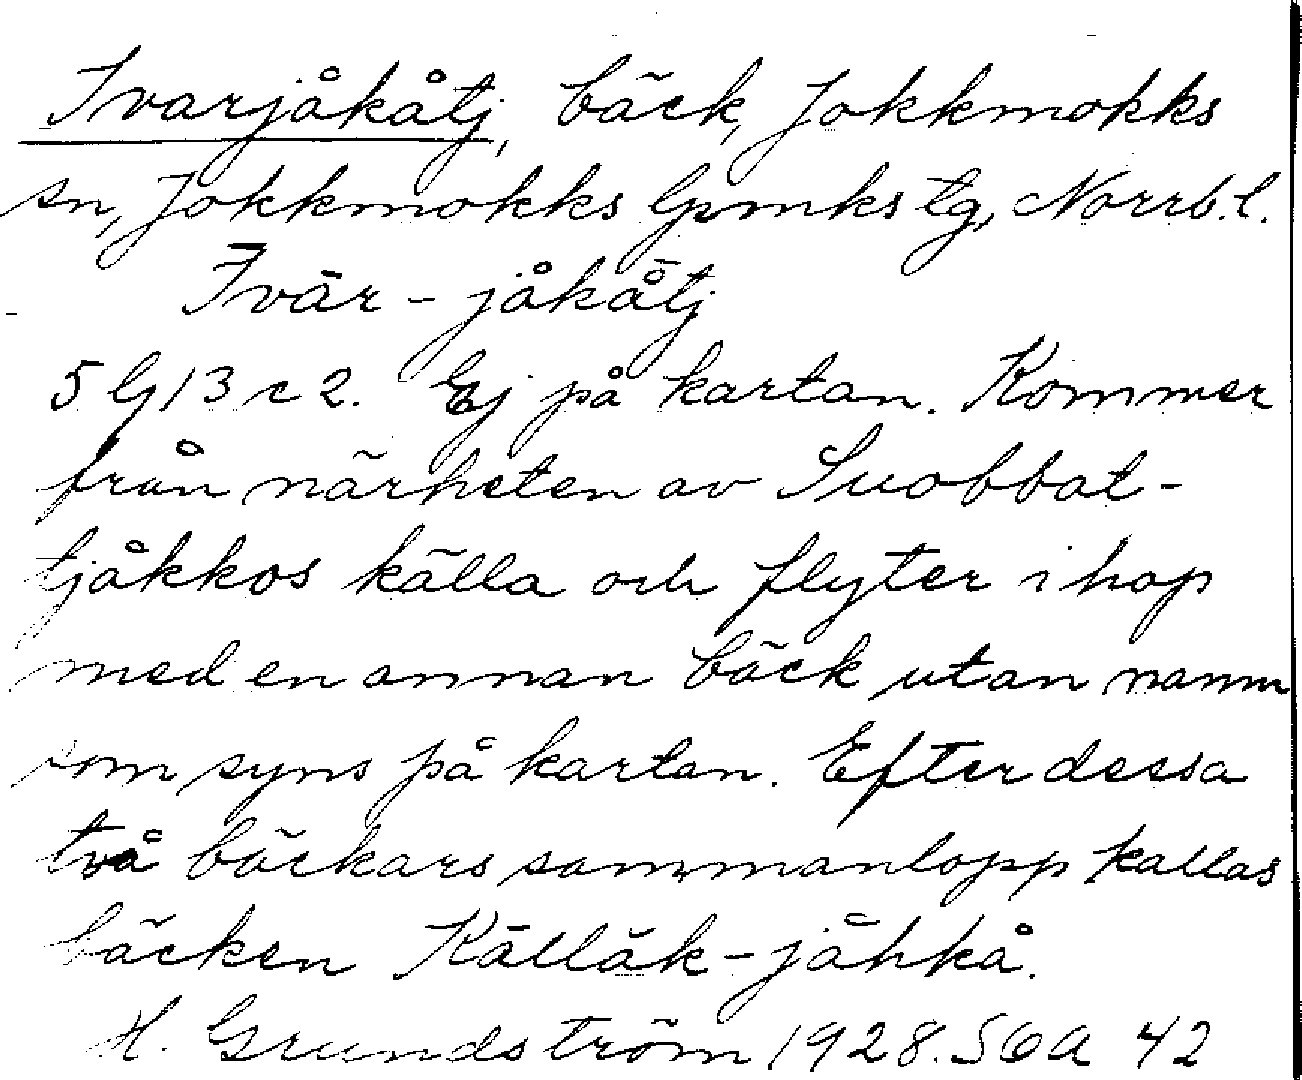 Ivarjåkåtj, bäck, Jokkmokks
sn, Jokkmokks lpmks tg, Norrb. l.
Īvār-jåkå̄tj
5 G 13 c 2. Ej på kartan. Kommer
från närheten av Suobbat-
tjåkkos källa och flyter ihop
med en annan bäck utan namn
som syns på kartan. Efter dessa
två bäckars sammanlopp kallas
bäcken Källăk-jåhkå.
H. Grundström 1928. SOA 42